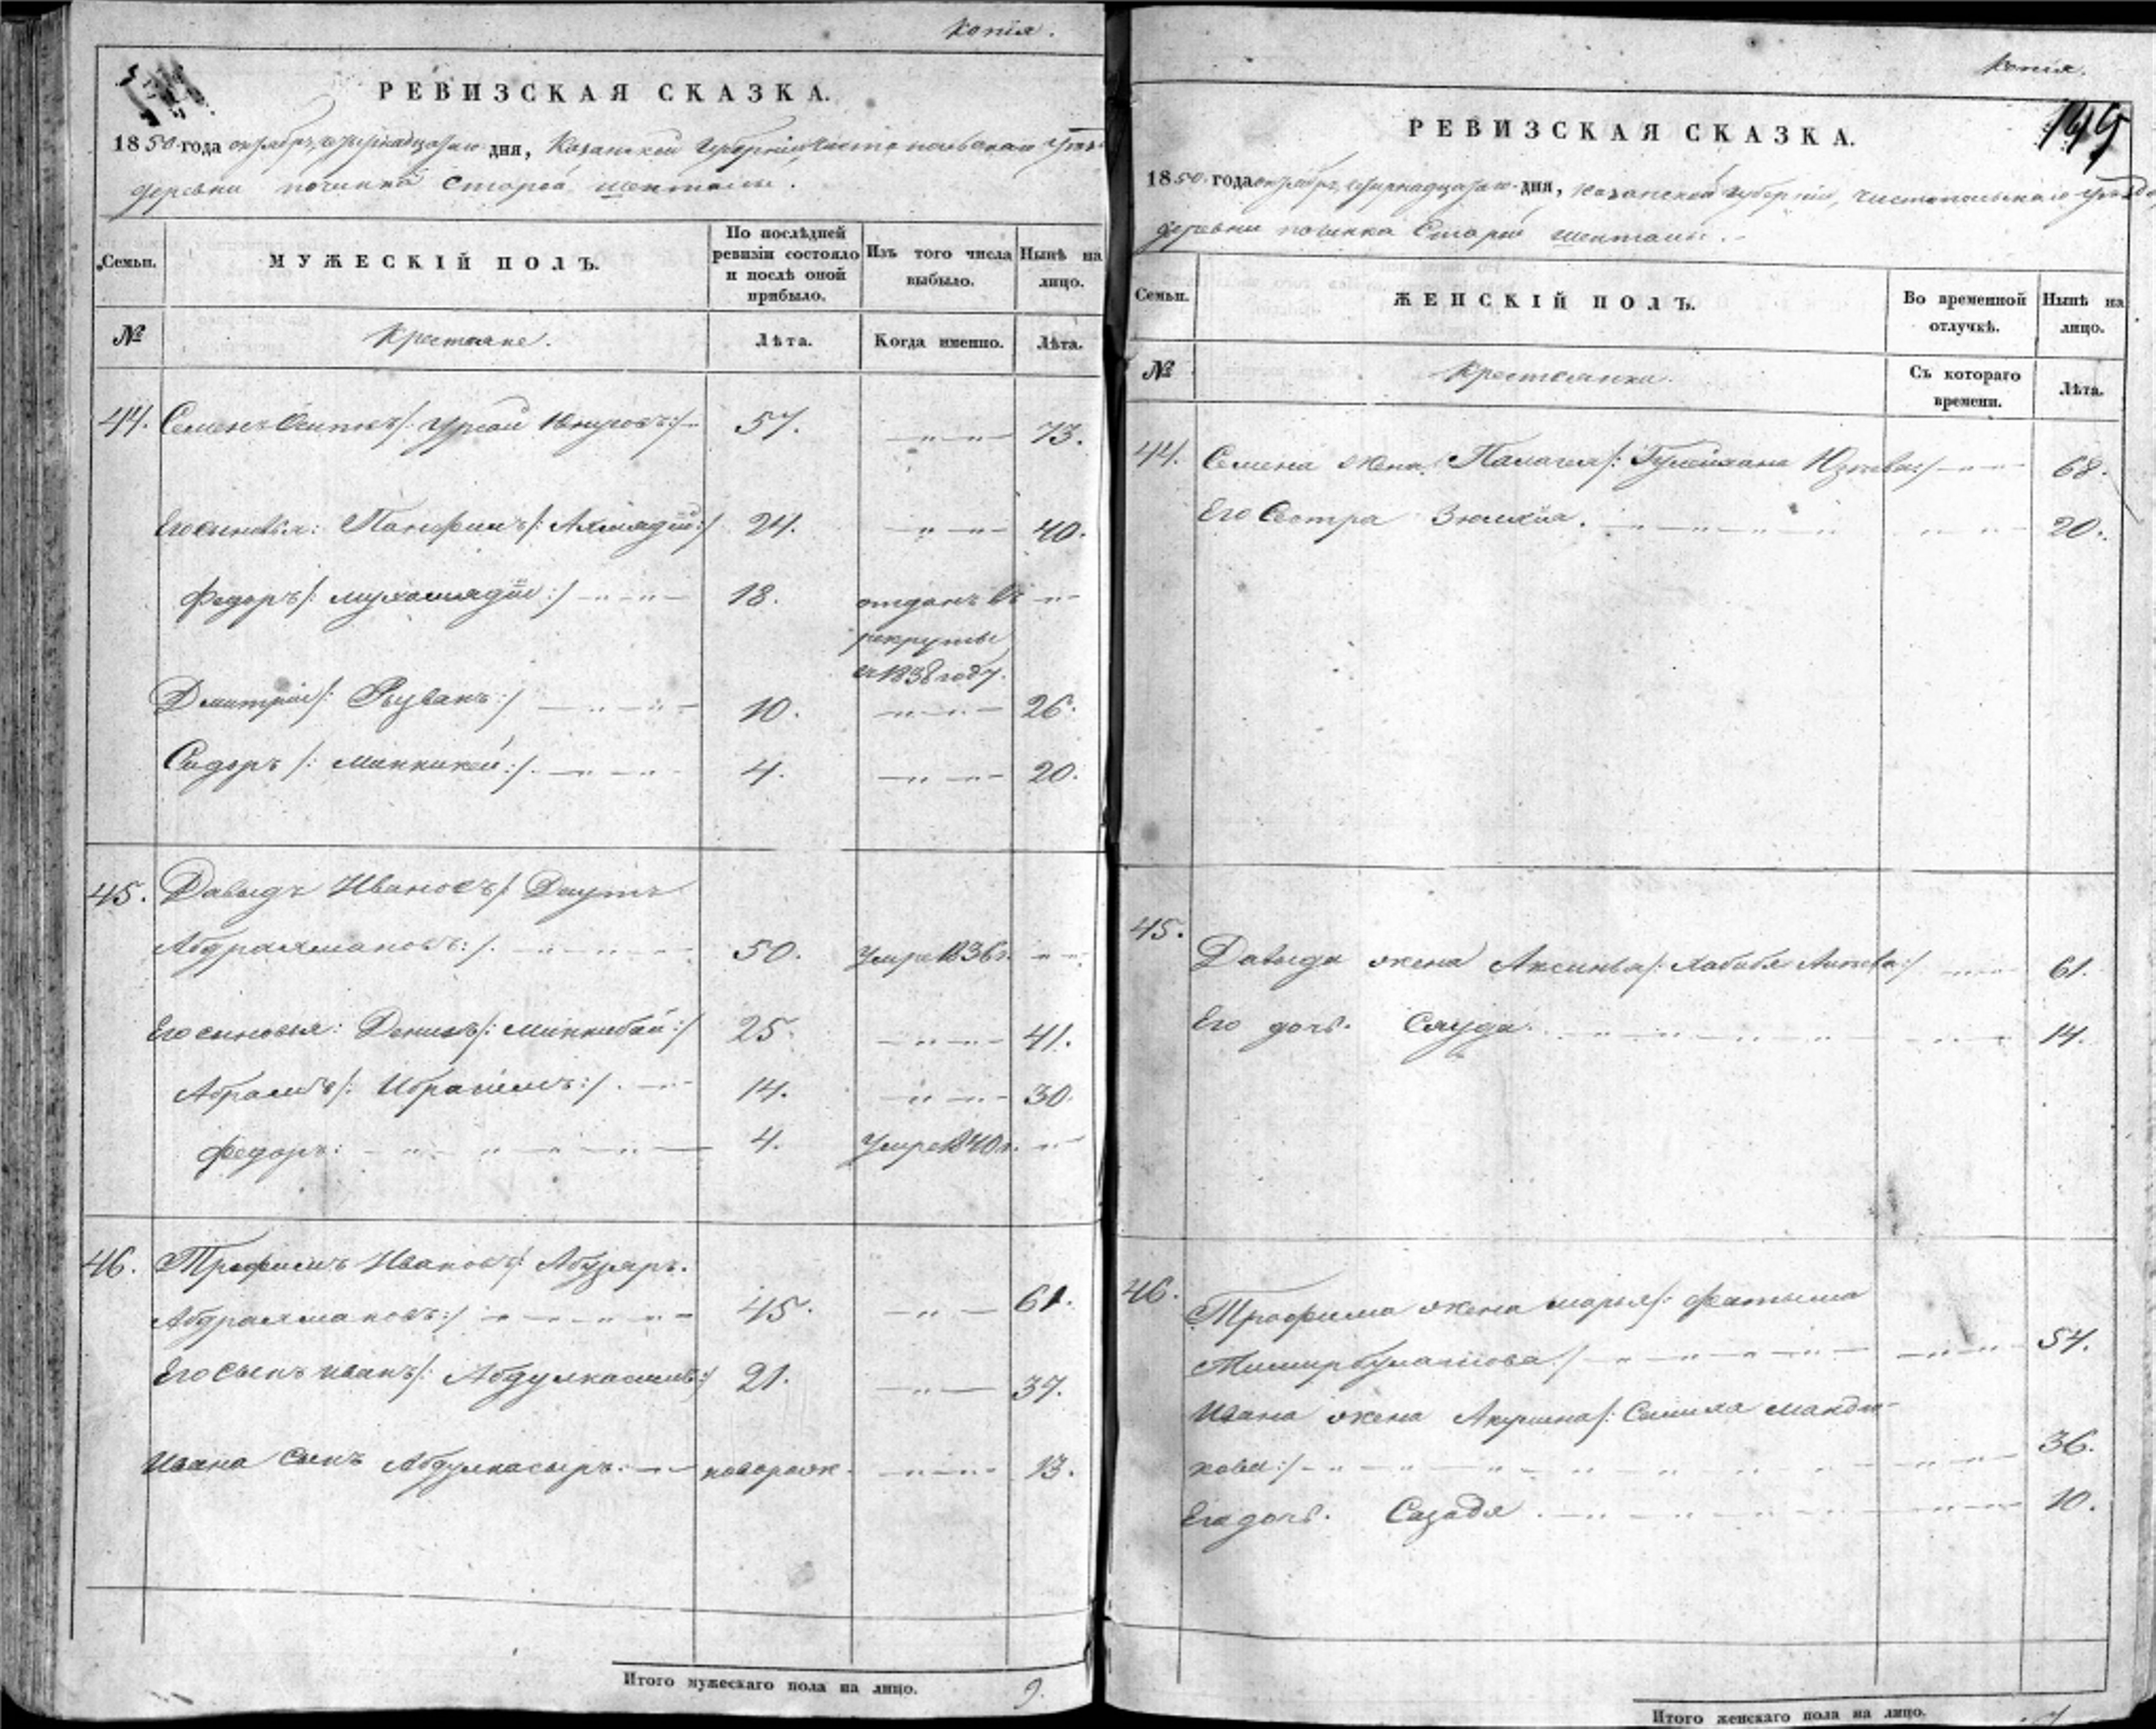 копія.
РЕВИЗСКАЯ СКАЗКА.
1850 года октября четырнадцатаго дня, Казанской Губерніи, Чистопольскаго уезда
деревни починка Старой шенталы.
Семьи.
МУЖЕСКІЙ ПОЛЪ.
По послѣдней ревизіи состояло и послѣ оной прибыло.
Изъ того числа выбыло.
Нынѣ на лицо.
№
Крестьяне.
Лѣта.
Когда именно.
Лѣта.
44. Семенъ Осиповъ /: Юнусовъ :/ 57. 73.
Его сыновья: Панфилъ /: Ахмядій :/ 24. 40.
Федоръ /: Мухамядій :/ 18. отданъ въ
рекруты
въ 1838 году.
Дмитрій /: Рызванъ :/ 10. 26.
Сидоръ /: Минникей :/ 4. 20.
45. Давыдъ Ивановъ /: Даутъ
Абдрахмановъ :/ 50. Умре 1836 г.
Его сыновья: Денисъ /: Миннибай :/ 25. 41.
Абрамъ /: Ибрагимъ :/ 14. 30.
Федоръ: 4. Умре 1840 г.
46. Трофимъ Ивановъ /: Абузяръ.
Абдрахмановъ :/ 45. 61.
Его сынъ Иванъ /: Абдулкасимъ :/ 21. 37.
Ивана сынъ Абдулнасыръ. новорож. 13.
Итого мужескаго пола на лицо. 9.
копія.
149
РЕВИЗСКАЯ СКАЗКА.
1850 года октября четырнадцатаго дня, Казанской Губерніи, Чистопольскаго уезда
деревни починка Старой шенталы.
Семьи.
ЖЕНСКІЙ ПОЛЪ.
Во временной отлучкѣ.
Нынѣ на лицо.
№
Крестьянки.
Съ котораго времени.
Лѣта.
44. Семена жена Палагея /: Гулейхана :/ 68.
Его Сестра Зюлхія. 20.
45. Давыда жена Аксинья /: Хабибя :/ 61.
Его дочь. Сяуда. 14.
46. Трофима жена Марья /: Фатыма
Тимирбулатова :/ 54.
Ивана жена Акулина /:
кова :/ 36.
Его дочь. Сагадя. 10.
Итого женскаго пола на лицо. 7